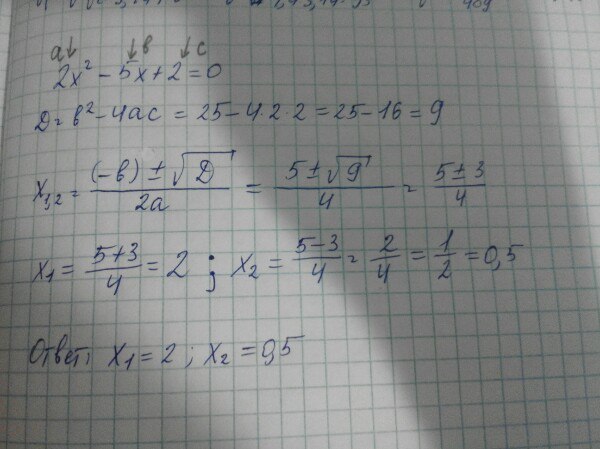 a↓ ↓в ↓с
2x² − 5x + 2 = 0
D = в² − 4ac = 25 − 4·2·2 = 25 − 16 = 9
x₁,₂ = (−в) ± √D / 2a = 5 ± √9 / 4 = 5 ± 3 / 4
x₁ = 5+3 / 4 = 2 ; x₂ = 5−3 / 4 = 2/4 = 1/2 = 0,5
Ответ: x₁ = 2 ; x₂ = 0,5